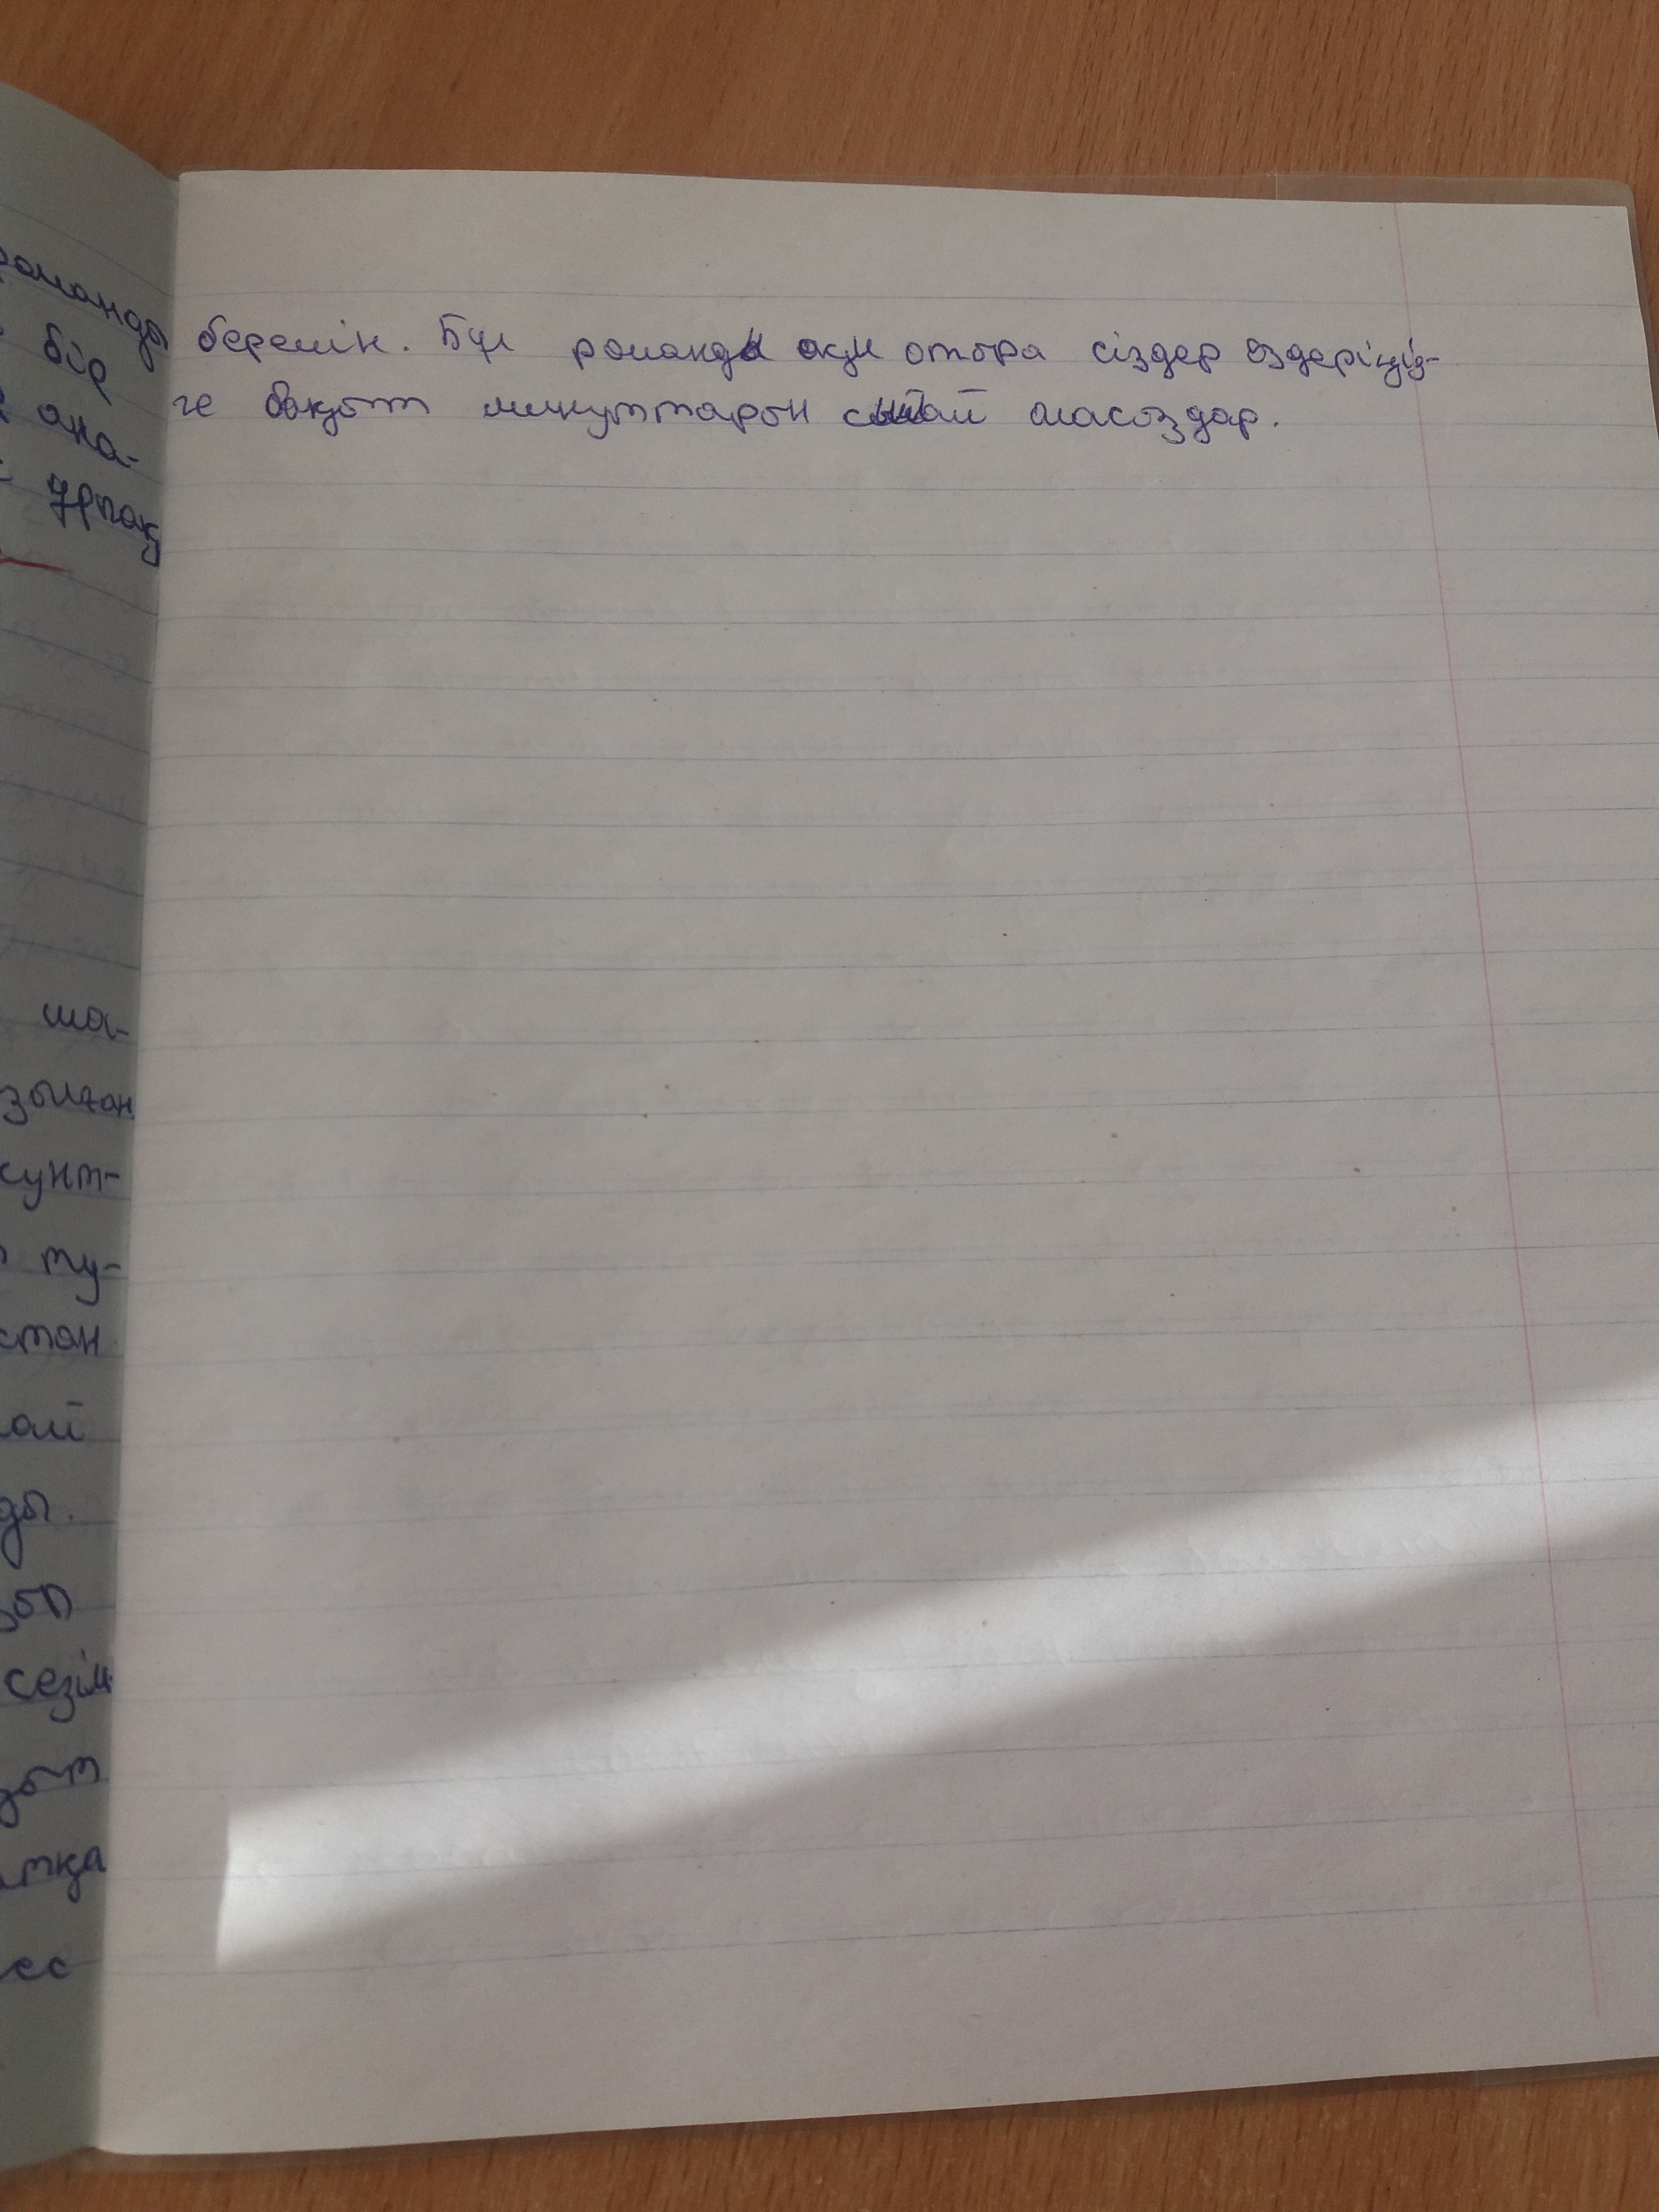 романды
бір
ана-
ұрпақ
ша-
зылған
сунт-
ту-
стан
ай
ды.
сезім
тқа
беремін. Бұл романды оқи отыра сіздер өздеріңіз-
ге бақыт минуттарын сыйлай аласыздар.